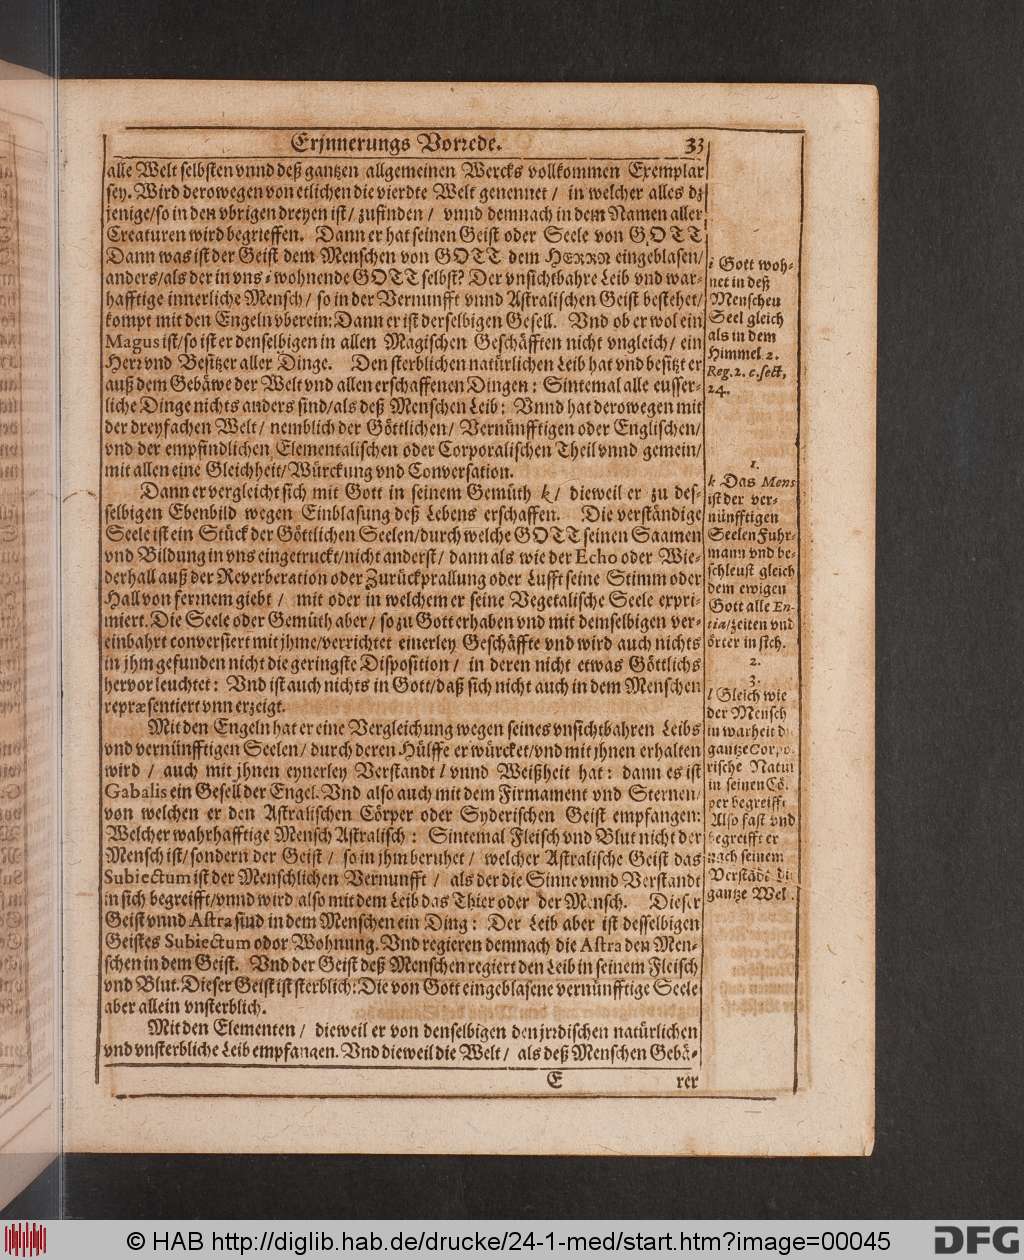 Erjnnerungs Vorrede. 33
alle Welt selbsten vnnd deß gantzen allgemeinen Wercks vollkommen Exemplar
sey. Wird derowegen von etlichen die vierdte Welt genennet / in welcher alles dz
jenige/so in den vbrigen dreyen ist/ zufinden / vnnd demnach in dem Namen aller
Creaturen wird begrieffen. Dann er hat seinen Geist oder Seele von GOTT
Dann was ist der Geist dem Menschen von GOTT dem HERRN eingeblasen/
anders/als der in vns i wohnende GOTT selbst? Der vnsichtbahre Leib vnd war-
hafftige innerliche Mensch/ so in der Vernunfft vnnd Astralischen Geist bestehet/
kompt mit den Engeln vberein: Dann er ist derselbigen Gesell. Vnd ob er wol ein
Magus ist/so ist er denselbigen in allen Magischen Geschäfften nicht vngleich/ ein
Herr vnd Besitzer aller Dinge. Den sterblichen natürlichen Leib hat vnd besitzt er
auß dem Gebäwe der Welt vnd allen erschaffenen Dingen: Sintemal alle eusser-
liche Dinge nichts anders sind/als deß Menschen Leib: Vnnd hat derowegen mit
der dreyfachen Welt/ nemblich der Göttlichen/ Vernünfftigen oder Englischen/
vnd der empfindlichen Elementalischen oder Corporalischen Theil vnnd gemein/
mit allen eine Gleichheit/Würckung vnd Conversation.
Dann er vergleicht sich mit Gott in seinem Gemüth k/ dieweil er zu des-
selbigen Ebenbild wegen Einblasung deß Lebens erschaffen. Die verständige
Seele ist ein Stück der Göttlichen Seelen/durch welche GOTT seinen Saamen
vnd Bildung in vns eingetruckt/nicht anderst/ dann als wie der Echo oder Wie-
derhall auß der Reverberation oder Zurückprallung oder Lufft seine Stimm oder
Hall von fernem giebt / mit oder in welchem er seine Vegetalische Seele expri-
miert. Die Seele oder Gemüth aber/ so zu Gott erhaben vnd mit demselbigen ver-
einbahrt conversiert mit jhme/verrichtet einerley Geschäffte vnd wird auch nichts
in jhm gefunden nicht die geringste Disposition / in deren nicht etwas Göttlichs
hervor leuchtet: Vnd ist auch nichts in Gott/daß sich nicht auch in dem Menschen
repræsentiert vnn erzeigt.
Mit den Engeln hat er eine Vergleichung wegen seines vnsichtbahren Leibs
vnd vernünfftigen Seelen/ durch deren Hülffe er würcket/vnd mit jhnen erhalten
wird / auch mit jhnen eynerley Verstandt l vnnd Weißheit hat: dann es ist
Gabalis ein Gesell der Engel. Vnd also auch mit dem Firmament vnd Sternen/
von welchen er den Astralischen Cörper oder Syderischen Geist empfangen:
Welcher wahrhafftige Mensch Astralisch: Sintemal Fleisch vnd Blut nicht der
Mensch ist/sondern der Geist / so in jhm beruhet / welcher Astralische Geist das
Subiectum ist der Menschlichen Vernunfft / als der die Sinne vnnd Verstandt
in sich begreifft/vnnd wird also mit dem Leib das Thier oder der Mensch. Dieser
Geist vnnd Astra sind in dem Menschen ein Ding: Der Leib aber ist desselbigen
Geistes Subiectum odor Wohnung. Vnd regieren demnach die Astra den Men-
schen in dem Geist. Vnd der Geist deß Menschen regiert den Leib in seinem Fleisch
vnd Blut. Dieser Geist ist sterblich: Die von Gott eingeblasene vernünfftige Seele
aber allein vnsterblich.
Mit den Elementen / dieweil er von denselbigen den jrrdischen natürlichen
vnd vnsterbliche Leib empfangen. Vnd dieweil die Welt / als deß Menschen Gebä-
E rer
i Gott woh-
net in deß
Menschen
Seel gleich
als in dem
Himmel 2.
Reg. 2. c. sect,
24.
1.
k Das Mens
ist der ver-
nünfftigen
Seelen Fuhr-
mann vnd be-
schleust gleich
dem ewigen
Gott alle En-
tia/zeiten vnd
örter in sich.
2.
3.
l Gleich wie
der Mensch
in warheit d
gantze Corpo
rische Natur
in seinen Cö.
per begreifft
Also fast vnd
begreifft er
nach seinem
Verstãdt di
gantze Wel.
© HAB http://diglib.hab.de/drucke/24-1-med/start.htm?image=00045
DFG